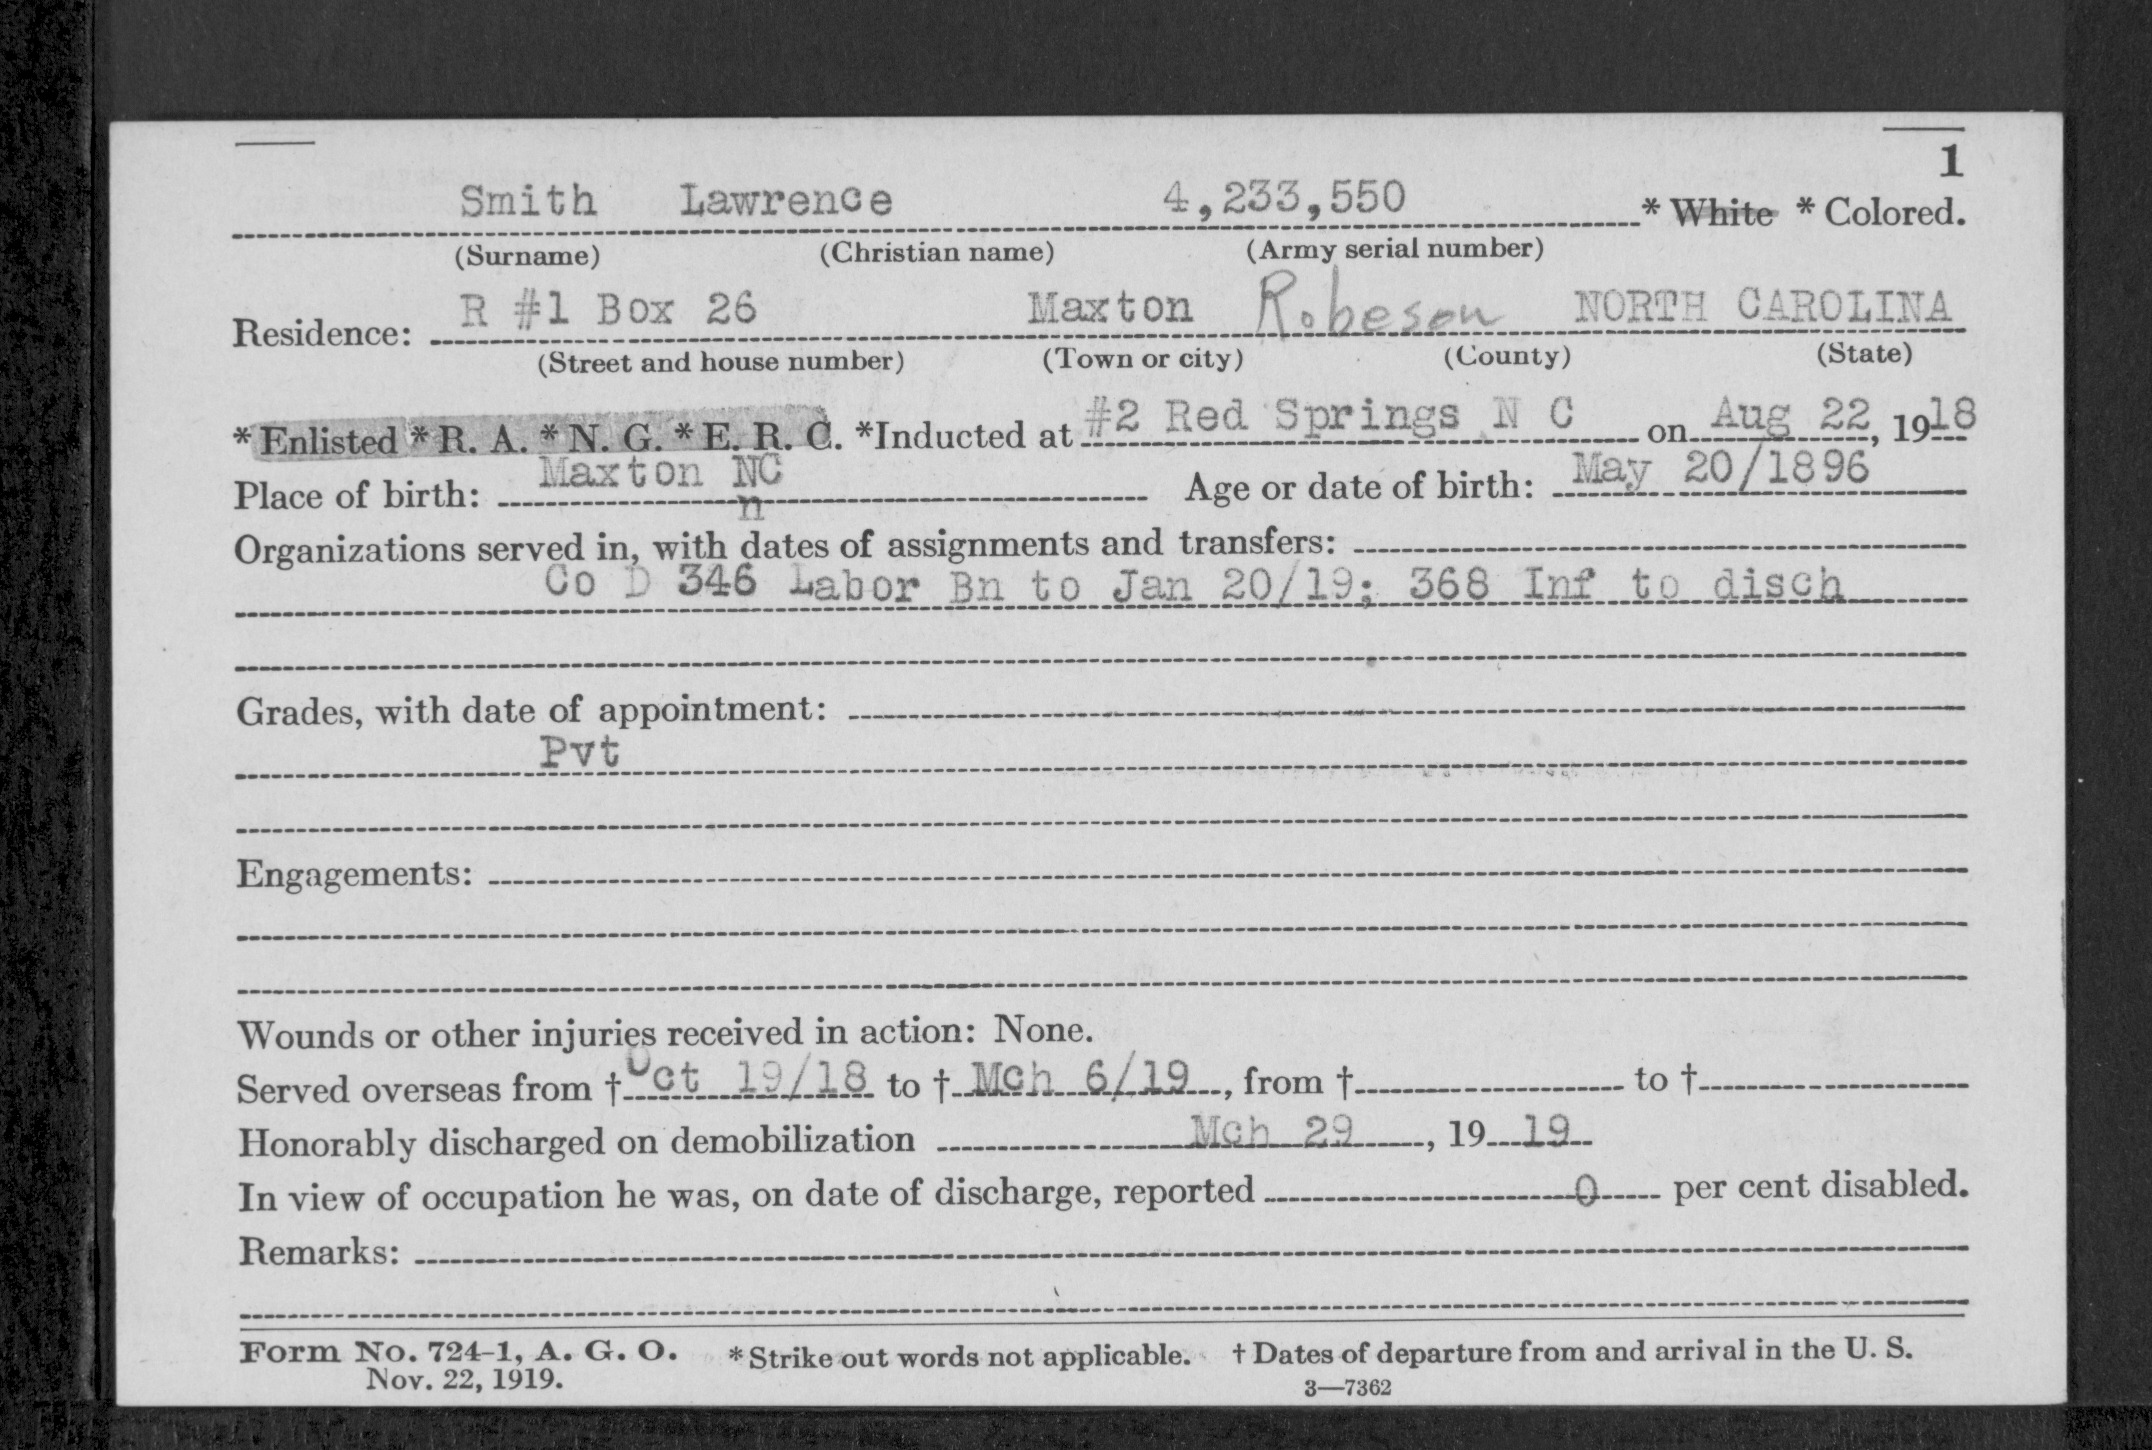 1
Smith Lawrence 4,233,550 * White * Colored.
(Surname) (Christian name) (Army serial number)
Residence: R #1 Box 26 Maxton Robeson NORTH CAROLINA
(Street and house number) (Town or city) (County) (State)
* Enlisted * R. A. * N. G. * E. R. C. *Inducted at #2 Red Springs N C on Aug 22, 1918
Place of birth: Maxton NC Age or date of birth: May 20/1896
n
Organizations served in, with dates of assignments and transfers:
Co D 346 Labor Bn to Jan 20/19; 368 Inf to disch
Grades, with date of appointment:
Pvt
Engagements:
Wounds or other injuries received in action: None.
Served overseas from † Oct 19/18 to † Mch 6/19, from † to †
Honorably discharged on demobilization Mch 29, 19 19
In view of occupation he was, on date of discharge, reported 0 per cent disabled.
Remarks:
Form No. 724-1, A. G. O. * Strike out words not applicable. † Dates of departure from and arrival in the U. S.
Nov. 22, 1919. 3—7362